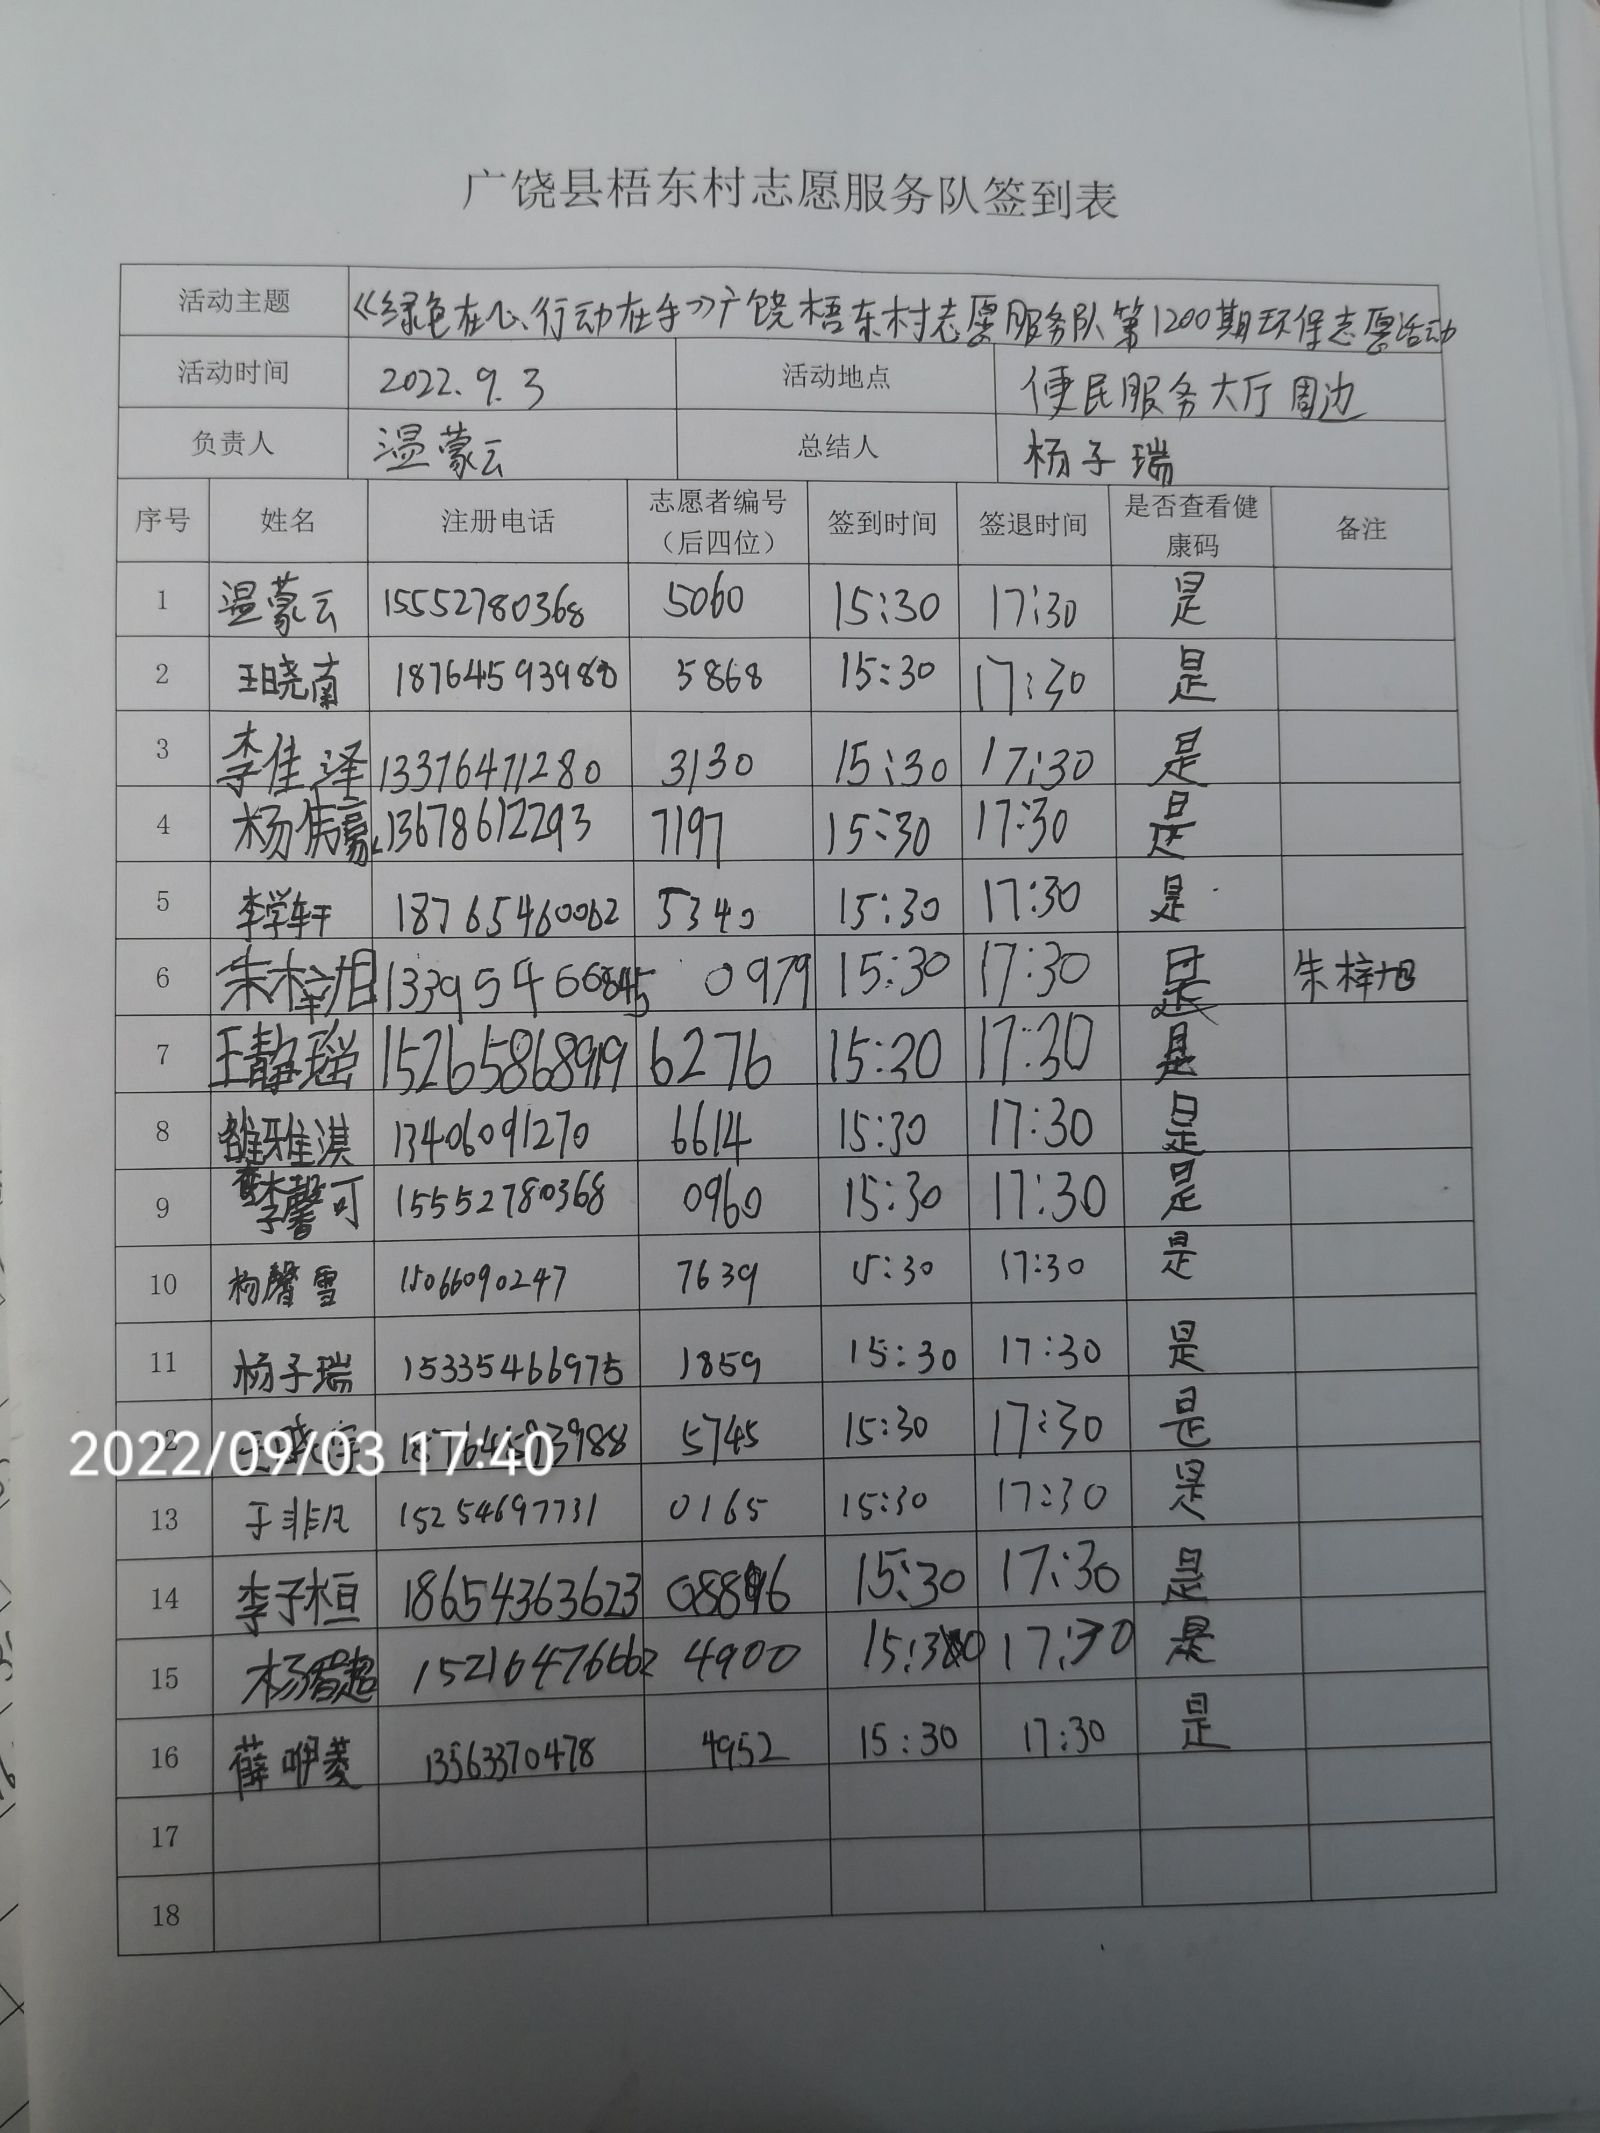 广饶县梧东村志愿服务队签到表
活动主题 《绿色在心、行动在手》广饶梧东村志愿服务队第1200期环保志愿活动
活动时间 2022.9.3 活动地点 便民服务大厅周边
负责人 温蒙云 总结人 杨子瑞
序号 姓名 注册电话 志愿者编号（后四位） 签到时间 签退时间 是否查看健康码 备注
1 温蒙云 15552780368 5060 15:30 17:30 是
2 王晓南 18764593988 5868 15:30 17:30 是
3 李佳泽 13376471280 3130 15:30 17:30 是
4 杨伟豪 13678612293 7197 15:30 17:30 是
5 李学轩 18765460062 5340 15:30 17:30 是
6 朱梓旭 0979 15:30 17:30 是 朱梓旭
7 王静瑶 15265868919 6276 15:30 17:30 是
8 雒雅淇 13406091270 6614 15:30 17:30 是
9 李馨可 15552780368 0960 15:30 17:30 是
10 杨馨雪 15066090247 7639 15:30 17:30 是
11 杨子瑞 15335466975 1859 15:30 17:30 是
12 18764593988 5745 15:30 17:30 是
2022/09/03 17:40
13 于非凡 15254697731 0165 15:30 17:30 是
14 李子桓 18654363623 15:30 17:30 是
15 15216476662 4900 15:30 17:30 是
16 薛咿菱 13563370478 4952 15:30 17:30 是
17
18